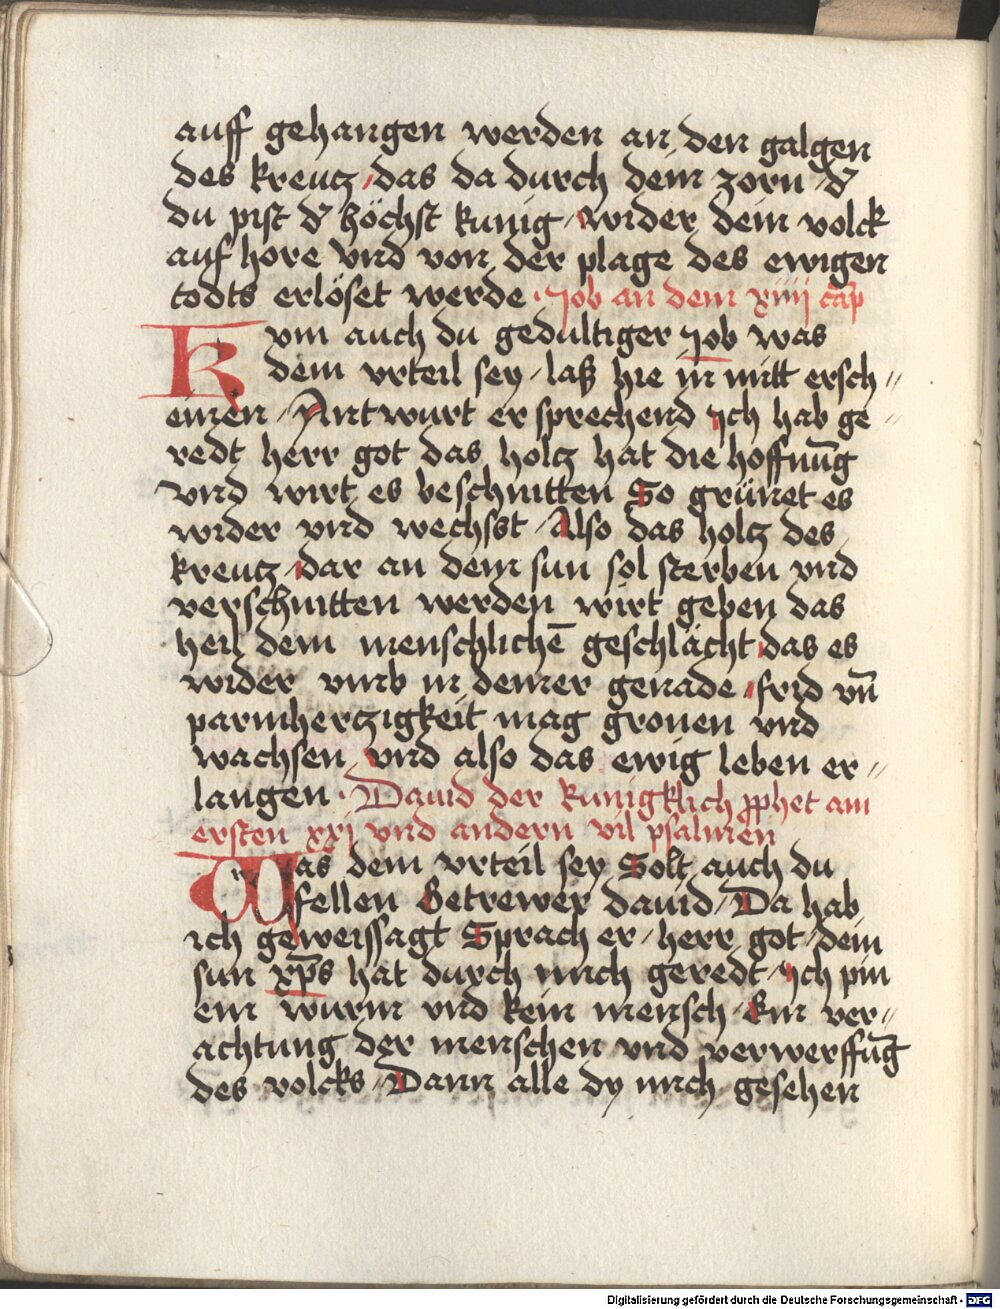 auff gehangen werden an den galgen
des kreutz / das da durch dein zorn / d̕
du pist d̕ höchst kunig / wider dein volck
auf hore vnd von der plage des ewigen
todts erlöset werde · Job an dem xiiij cap̄
Kvm auch du gedultiger Job was
dein vrteil sey / laß hie in mitt ersch //
einen / Antwurt er sprechend Jch hab ge //
redt herr got das holtz hat die hoffnūg
vnd wirt es beschnitten So grünet es
wider vnd wechsst / Also das holtz des
kreutz / dar an dein sun sol sterben vnd
verschnitten werden wirt geben das
heil dem menschlichē geschlächt / das es
wider vmb in deiner genade / frid vn̄
parmhertzigkeit mag gronen vnd
wachsen / vnd also das ewig leben er //
langen · Dauid der kunigklich ꝓphet am
ersten xxj vnd andern vil psalmen
Was dein vrteil sey Solt auch du
fellen Getrewer dauid / Da hab
ich geweissagt Sprach er / herr got / dein
sun xp̄s hat durch mich geredt / Jch pin
ein wurm vnd kein mensch / Ein ver //
achtung der menschen vnd verwerffūg
des volcks / Dann alle dy mich gesehen
Digitalisierung gefördert durch die Deutsche Forschungsgemeinschaft - DFG